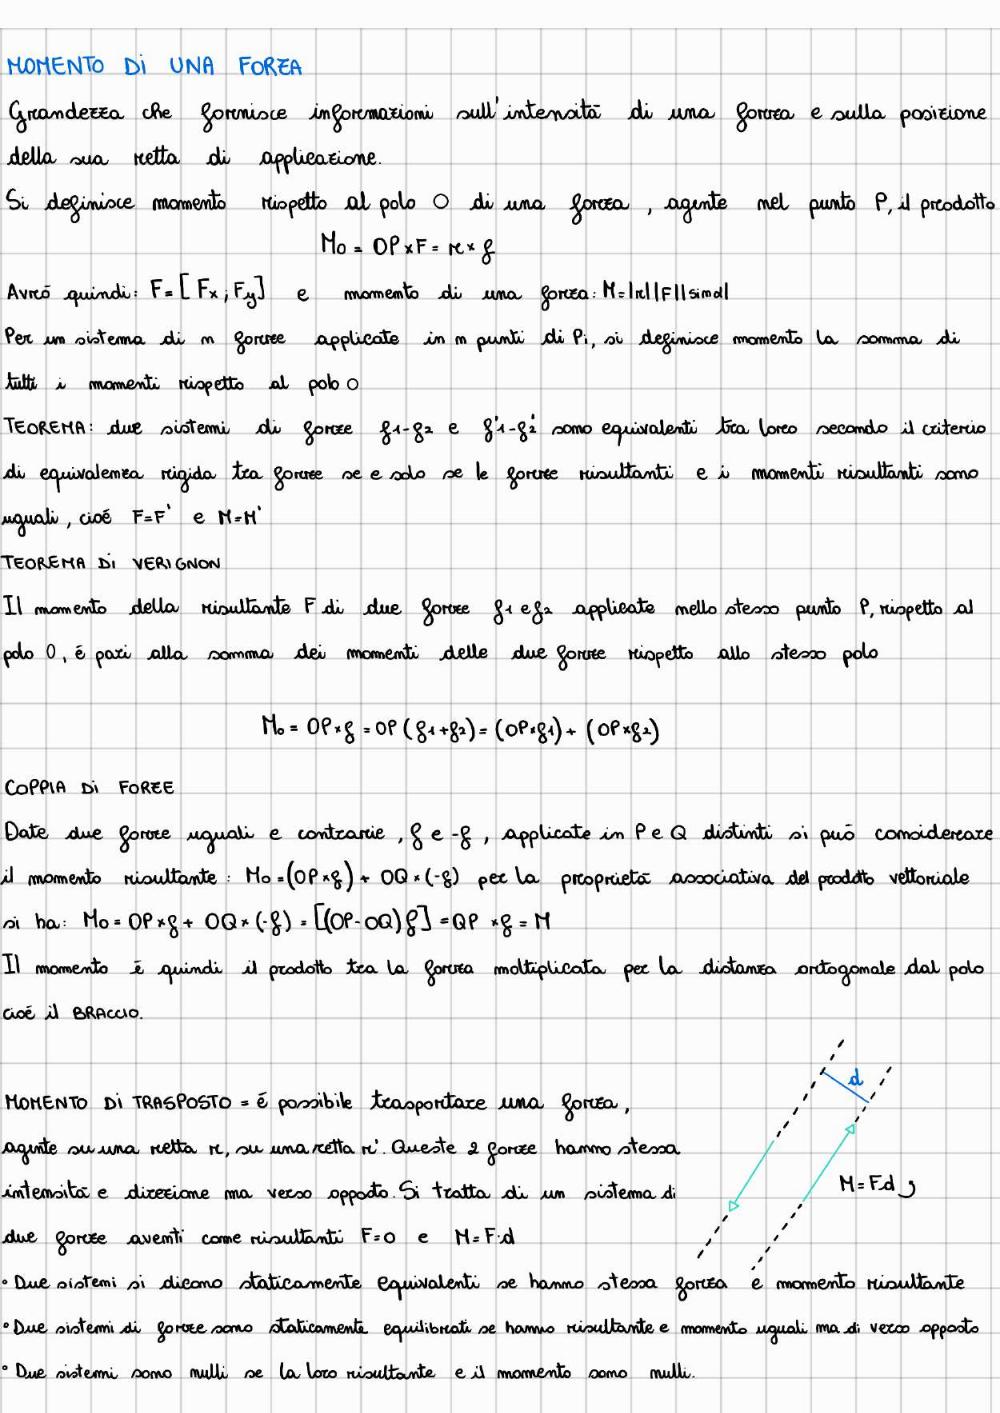 MOMENTO DI UNA FORZA
Grandezza che fornisce informazioni sull'intensitā di una forza e sulla posizione
della sua retta di applicazione.
Si definisce momento rispetto al polo O di una forza , agente nel punto P, il prodotto
Mo = OP × F = r × f
Avrō quindi: F = [ Fx ; Fy ] e momento di una forza: M=|r||F||sinα|
Per un sistema di n forze applicate in n punti di Pi, si definisce momento la somma di
tutti i momenti rispetto al polo O
TEOREMA: due sistemi di forze f1-f2 e f'1-f2' sono equivalenti tra loro secondo il criterio
di equivalenza rigida tra forze se e solo se le forze risultanti e i momenti risultanti sono
uguali, cioé F=F' e M=M'
TEOREMA DI VERIGNON
Il momento della risultante F di due forze f1 e f2 applicate nello stesso punto P, rispetto al
polo O, é pari alla somma dei momenti delle due forze rispetto allo stesso polo
Mo = OP × f = OP (f1+f2) = (OP×f1) + (OP×f2)
COPPIA DI FORZE
Date due forze uguali e contrarie , f e -f , applicate in P e Q distinti si puō considerare
il momento risultante : Mo = (OP × f) + OQ × (-f) per la proprietā associativa del prodotto vettoriale
si ha: Mo = OP × f + OQ × (-f) = [(OP-OQ) f] = QP × f = M
Il momento ē quindi il prodotto tra la forza moltiplicata per la distanza ortogonale dal polo
cioé il BRACCIO.
MOMENTO DI TRASPOSTO = é possibile trasportare una forza,
agente su una retta r, su una retta r'. Queste 2 forze hanno stessa
intensitā e direzione ma verso opposto. Si tratta di un sistema di
due forze aventi come risultanti F=0 e M=F·d
d
M=Fd
• Due sistemi si dicono staticamente equivalenti se hanno stessa forza e momento risultante
• Due sistemi di forze sono staticamente equilibrati se hanno risultante e momento uguali ma di verso opposto
• Due sistemi sono nulli se la loro risultante e il momento sono nulli.